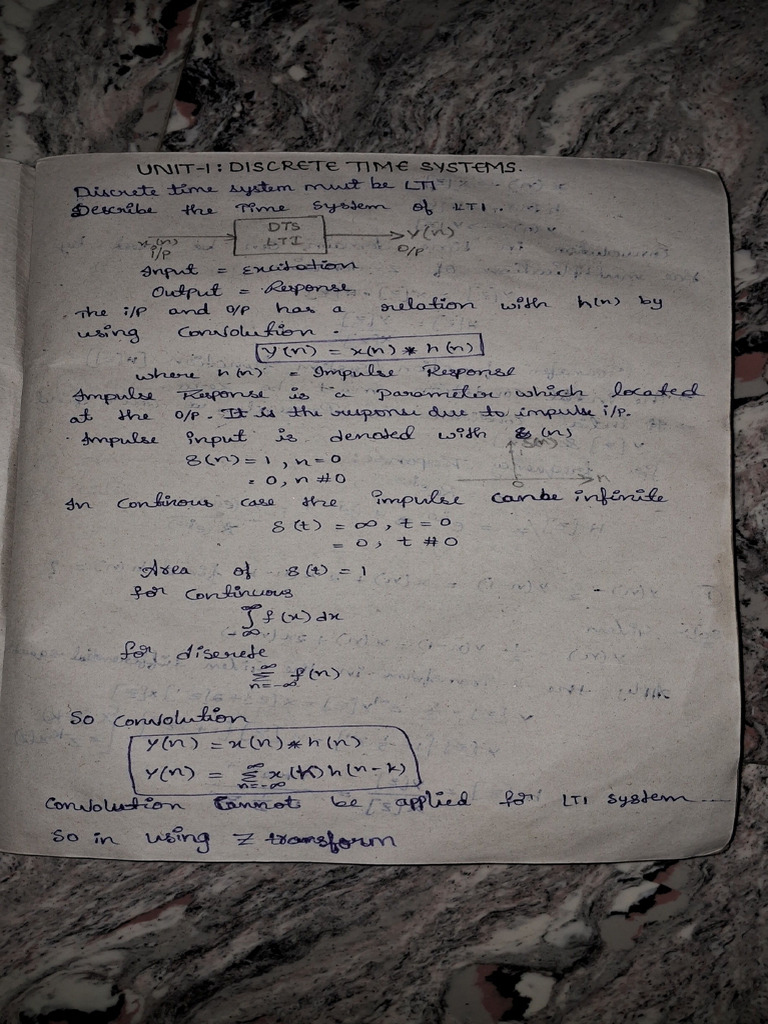 UNIT-1: DISCRETE TIME SYSTEMS.
Discrete time system must be LTI
Describe the Time System of LTI.
x(n) DTS LTI Y(n)
i/P O/P
Input = Excitation
Output = Response
The i/P and O/P has a relation with h(n) by
using Convolution.
Y(n) = x(n) * h(n)
where h(n) = Impulse Response
Impulse Response is a Parameter which located
at the O/P. It is the response due to impulse i/P.
Impulse input is denoted with δ(n)
δ(n) = 1, n=0
= 0, n ≠ 0
δ(n) n
0
In continous case the impulse canbe infinite
δ(t) = ∞, t = 0
= 0, t ≠ 0
Area of δ(t) = 1
for Continuous
∫_{-∞}^{∞} f(x) dx
for discrete
Σ_{n=-∞}^{∞} f(n)
So Convolution
Y(n) = x(n) * h(n)
Y(n) = Σ_{n=-∞}^{∞} x(k) h(n-k)
Convolution Cannot be applied for LTI system....
So in using Z transform